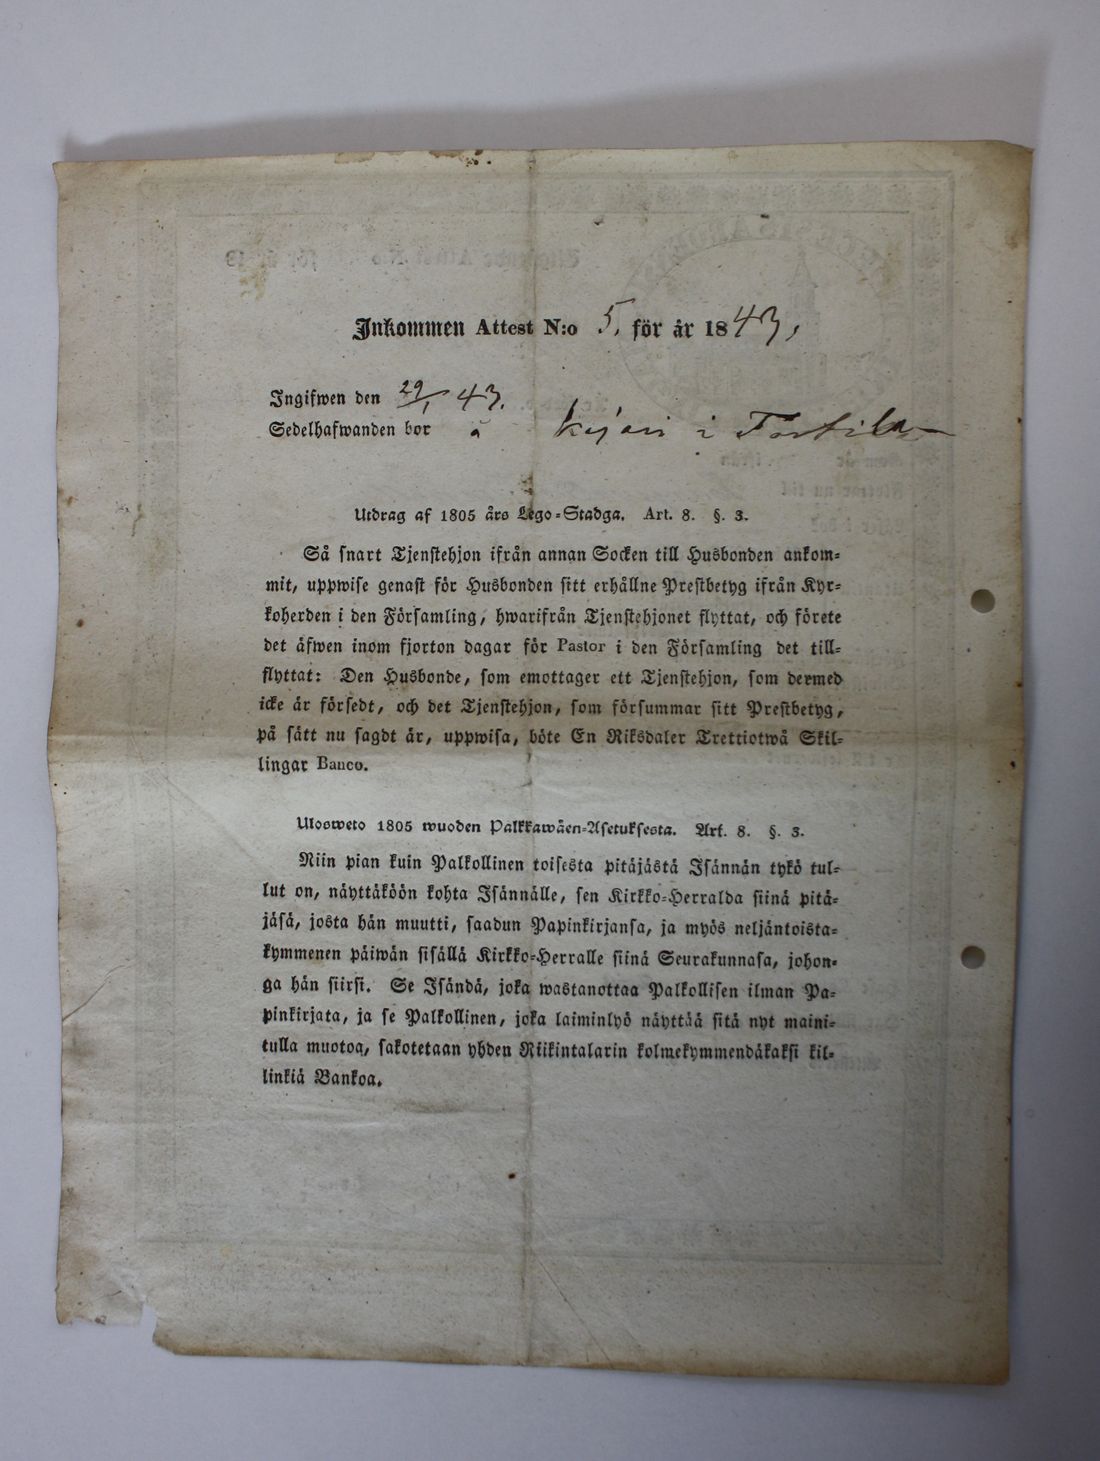 Inkommen Attest N:o 5. för år 1843,
Ingifwen den 29/1 43.
Sedelhafwanden bor å i
Utdrag af 1805 års Lego-Stadga. Art. 8. §. 3.
Så snart Tjenstehjon ifrån annan Socken till Husbonden ankom-
mit, uppwise genast för Husbonden sitt erhållne Prestbetyg ifrån Kyr-
koherden i den Församling, hwarifrån Tjenstehjonet flyttat, och förete
det äfwen inom fjorton dagar för Pastor i den Församling det till-
flyttat: Den Husbonde, som emottager ett Tjenstehjon, som dermed
icke är försedt, och det Tjenstehjon, som försummar sitt Prestbetyg,
på sätt nu sagdt är, uppwisa, böte En Riksdaler Trettiotwå Skil-
lingar Banco.
Ulosweto 1805 wuoden Palkkawäen-Asetuksesta. Art. 8. §. 3.
Niin pian kuin Palkollinen toisesta pitäjästä Isännän tykö tul-
lut on, näyttäköön kohta Isännälle, sen Kirkko-Herralda siinä pitä-
jäsä, josta hän muutti, saadun Papinkirjansa, ja myös neljäntoista-
kymmenen päiwän sisällä Kirkko-Herralle siinä Seurakunnasa, johon-
ga hän siirsi. Se Isändä, joka wastanottaa Palkollisen ilman Pa-
pinkirjata, ja se Palkollinen, joka laiminlyö näyttää sitä nyt maini-
tulla muotoa, sakotetaan yhden Riikintalarin kolmekymmendäkaksi kil-
linkiä Bankoa.